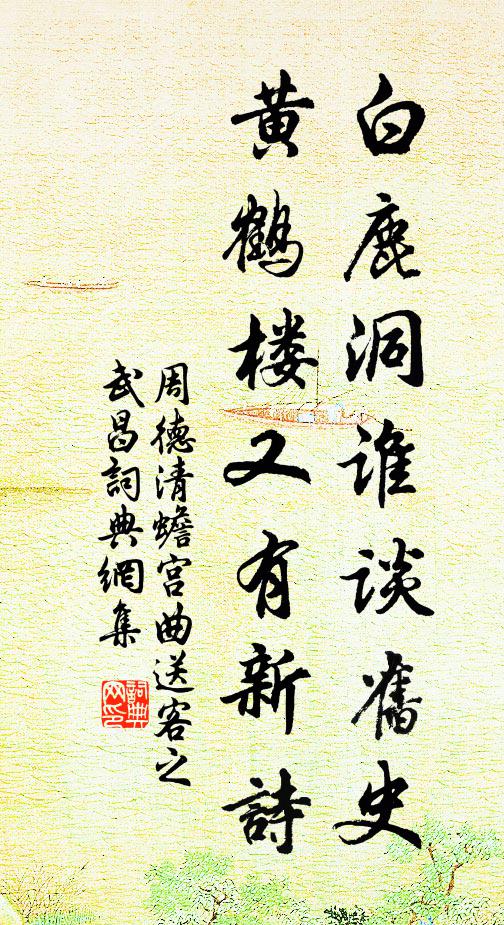 白鹿洞谁谈舊史
黄鹤楼又有新詩
周德清蟾宫曲送客之
武昌詞典網集
詞典网印